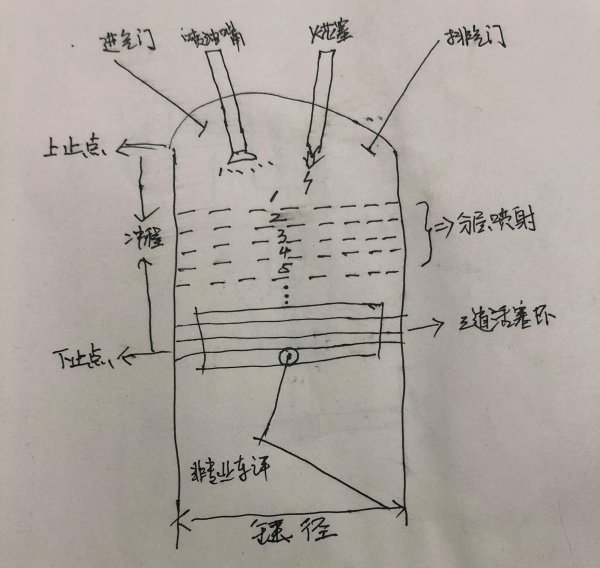 进气门 喷油嘴 火花塞 排气门
上止点
1
2
3
4
5
冲程
分层喷射
三道活塞环
下止点
非专业车评
缸径